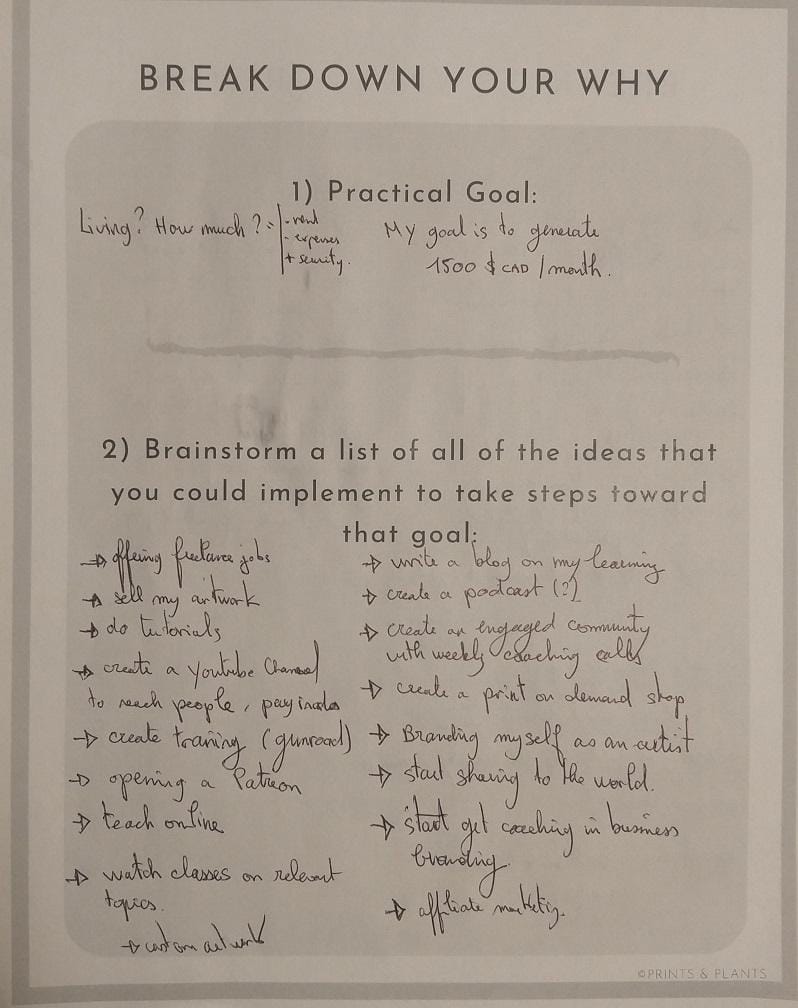 BREAK DOWN YOUR WHY
1) Practical Goal:
Living? How much? =
- rent
- expenses
+ security.
My goal is to generate
1500 $ CAD / month.
2) Brainstorm a list of all of the ideas that
you could implement to take steps toward
that goal:
→ offering freelance jobs
→ sell my artwork
→ do tutorials
→ create a Youtube Channel
to reach people,
→ create training (gumroad)
→ opening a Patreon
→ teach online
→ watch classes on relevant
topics.
→ custom artwork
→ write a blog on my learning
→ create a podcast (?)
→ create an engaged community
with weekly coaching calls
→ create a print on demand shop
→ Branding myself as an artist
→ start sharing to the world.
→ start get coaching in business
branding.
→ affiliate marketing.
©PRINTS & PLANTS